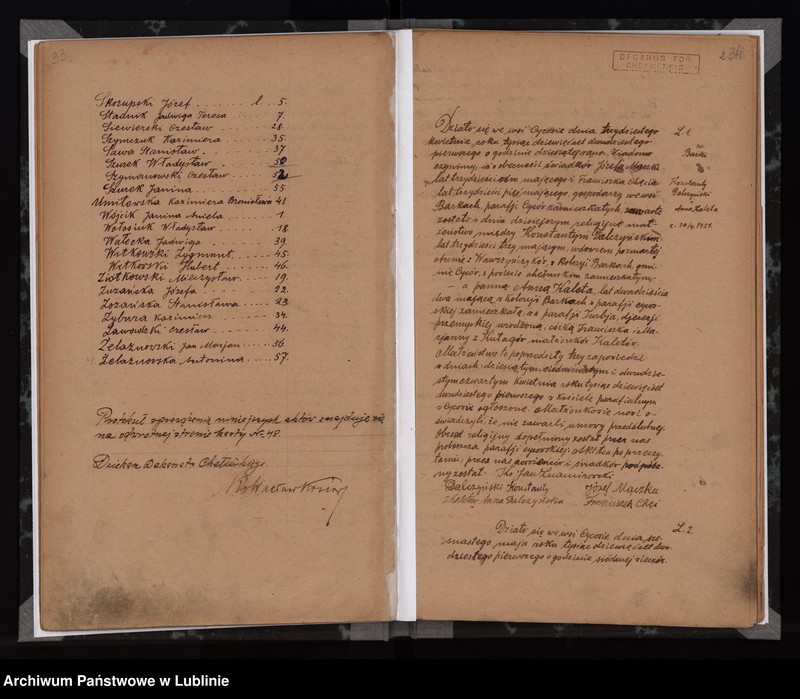 33.
Skorupski Józef . . . . . . . . l. . 5.
Stadnik Jadwiga Teresa . . . . . 7.
Siewierski Czesław . . . . . . . 28.
Szymczuk Kazimiera . . . . . 35.
Sawa Stanisław . . . . . . . 37
Szurek Władysław . . . . . . 50
Szymanowski Czesław . . . . . 52
Szurek Janina . . . . . . . . 55
Umitowska Kazimiera Bronisława 41.
Wójcik Janina Aniela . . . . . 1.
Wołosiuk Władysław . . . . . 18.
Wałecka Jadwiga . . . . . . 39.
Witkowski Zygmunt . . . . . 45.
Witkowski Hubert . . . . . . 46.
Ziółkowski Mieczysław . . . . 19.
Zuzańska Józefa . . . . . . 22.
Zozańska Stanisława . . . . . 23
Zybura Kazimierz . . . . . . 34.
Zawadzki Czesław . . . . . . 44.
Żelaznowski Jan Marjan . . . . 56.
Żelaznowska Antonina . . . . 57.
Protokuł sporządzenia niniejszych aktów znajduje się
na odwrotnej stronie karty № 48.
Dziekan Dekanatu Chełmskiego
DECANUS FOR.
CHEŁMENSIS
Działo się we wsi Cycowie dnia trzydziestego
kwietnia, roku tysiąc dziewięćset dwudziestego
pierwszego o godzinie dziesiątej rano. Wiadomo
czynimy, iż w obecności świadków Józefa Maczki
lat trzydzieści ośm mającego i Franciszka Chęcia
lat trzydzieści pięć mającego, gospodarzy we wsi
Barkach, parafji Cyców zamieszkałych, zawarte
zostało w dniu dzisiejszym religijne mał-
żeństwo między Konstantym Dalczyńskim
lat trzydzieści trzy mającym, wdowcem po zmarłej
z kolonji Barkach, gmi-
nie Cyców, w powiecie chełmskim zamieszkałym,
— a panną Anną Kaleta, lat dwadzieścia
dwa mającą w kolonji Barkach w parafji cyco-
wskiej zamieszkałą, a w parafji Turbja, djecezji
przemyskiej urodzoną, córką Franciszka i Ma-
rjanny z Kutagów, małżonków Kaletów.
Małżeństwo to poprzedziły trzy zapowiedzi
w dniach: dziesiątym, siedmnastym i dwudzie-
stym czwartym kwietnia roku tysiąc dziewięćset
dwudziestego pierwszego w kościele parafialnym
w Cycowie ogłoszone. Małżonkowie nowi o-
świadczyli, że nie zawarli umowy przedślubnej.
Obrzęd religijny dopełniony został przez nas
proboszcza parafji cycowskiej. Akt ten po przeczy-
taniu, przez nas, nowożeńców i świadków podpisa-
ny został. Ks. Jan
Dalczyński Konstanty Józef Maczka
z Kaletów Anna Dalczyńska Franciszek Chęć
L. 1
Barki
Konstanty
Dalczyński
Anna Kaleta
d. 30/4 1921.
L. 2.
Działo się we wsi Cycowie dnia sze-
snastego maja roku tysiąc dziewięćset dwu-
dziestego pierwszego o godzinie siódmej wieczór.
Archiwum Państwowe w Lublinie